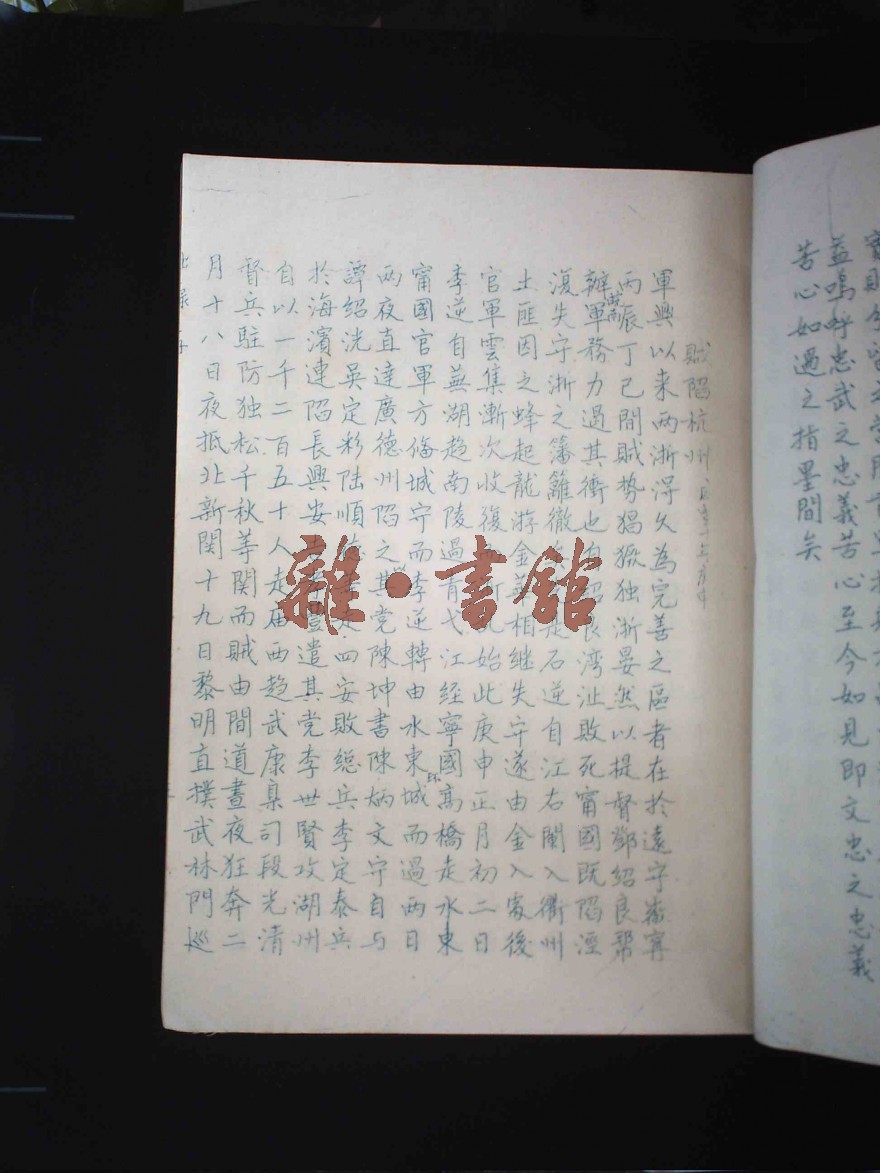 益嗚呼忠武之忠義苦心至今如見即文忠之忠義
苦心如遇之指墨間矣
賊陷杭州
軍興以来两浙淂久為完善之區者在於遠守寧
丙辰丁已間賊势猖獗独浙晏然以提督鄧紹良帮
辦營軍務力過其衝也湾沚敗死甯國既陷涇
復失守浙之籓籬徹石逆自江右闌入衢州
土匪因之蜂起龍游金華相継失守遂由金入後
官軍雲集漸次收復始此庚申正月初二日
李逆自蕪湖趋南陵過青弋江経寧國高橋走水東
甯國官軍方俻城守而李逆轉由水東環城而過两日
两夜直達廣德州陷之其党陳坤書陳炳文守自与
譚紹洸吳定彩陆順四安敗総兵李定泰兵
於海濱連陷長興安遣其党李世賢攻湖州
自以一千二百五十人走庙西趋武康臬司段光清
督兵駐防独松千秋等関而賊由間道晝夜狂奔二
月十八日夜抵北新関十九日黎明直撲武林門巡
雜·書館